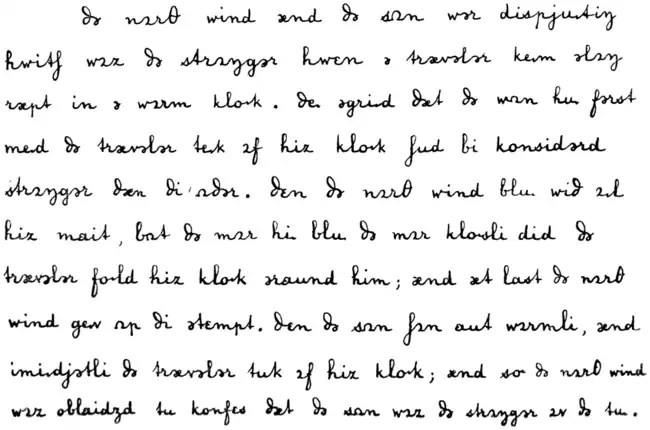 ðə nɔrθ wind ænd ðə sʌn wər dispjuˑtiŋ
hwitʃ wɔz ðə strɔŋgər hwen ə trævələr keˑm əlɔŋ
ræpt in ə wɔrm kloˑk. ðeˑ əgriˑd ðæt ðə wʌn huˑ fərst
meˑd ðə trævələr teˑk ɔf hiz kloˑk ʃud bi konsidərd
strɔŋgər ðæn ði ˈʌðər. ðen ðə nɔrθ wind bluˑ wið ɔˑl
hiz mait, bʌt ðə mɔr hiˑ bluˑ ðə mɔr kloˑsli did ðə
trævələr foˑld hiz kloˑk əraund him; ænd æt last ðə nɔrθ
wind geˑv ʌp ði ətempt. ðen ðə sʌn ʃɔn aut wɔrmli, ænd
imiˑdjətli ðə trævələr tuk ɔf hiz kloˑk; ænd soˑ ðə nɔrθ wind
wɔz oblaidʒd tu konfes ðæt ðə sʌn wɔz ðə strɔŋgər ɔv ðə tuˑ.